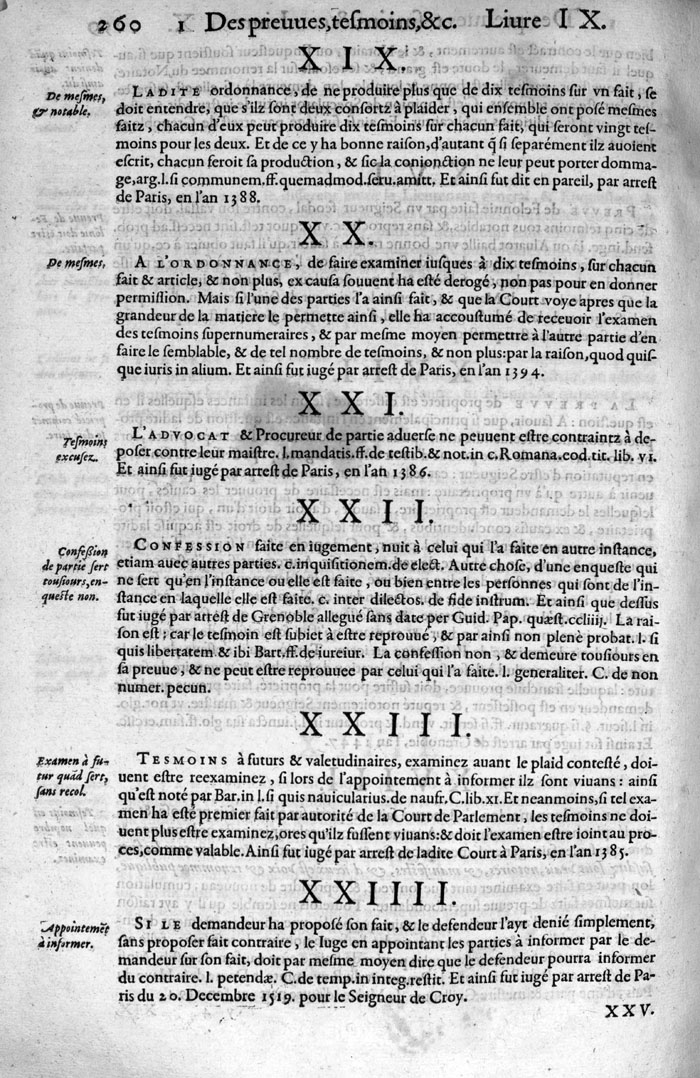 260 1 Des preuues, tesmoins, &c. Liure IX.
XIX.
De mesmes,
& notable.
LADITE ordonnance, de ne produire plus que de dix tesmoins sur vn fait, se
doit entendre, que s'ilz sont deux consortz à plaider, qui ensemble ont posé mesmes
faitz, chacun d'eux peut produire dix tesmoins sur chacun fait, qui seront vingt tes-
moins pour les deux. Et de ce y ha bonne raison, d'autant q̃ si separément ilz auoient
escrit, chacun feroit sa production, & sic la conionction ne leur peut porter domma-
ge, arg. l. si communem. ff. quemadmod. seru. amitt. Et ainsi fut dit en pareil, par arrest
de Paris, en l'an 1388.
XX.
De mesmes,
A L'ORDONNANCE, de faire examiner iusques à dix tesmoins, sur chacun
fait & article, & non plus, ex causa souuent ha esté derogé, non pas pour en donner
permission. Mais si l'une des parties l'a ainsi fait, & que la Court voye apres que la
grandeur de la matiere le permette ainsi, elle ha accoustumé de receuoir l'examen
des tesmoins supernumeraires, & par mesme moyen permettre à l'autre partie d'en
faire le semblable, & de tel nombre de tesmoins, & non plus: par la raison, quod quis-
que iuris in alium. Et ainsi fut iugé par arrest de Paris, en l'an 1394.
XXI.
Tesmoins
excusez.
L'ADVOCAT & Procureur de partie aduerse ne peuuent estre contraintz à de-
poser contre leur maistre. l. mandatis. ff. de testib. & not. in c. Romana. eod. tit. lib. vi.
Et ainsi fut iugé par arrest de Paris, en l'an 1386.
XXII.
Confession
de partie sert
tousiours, en-
queste non.
CONFESSION faite en iugement, nuit à celui qui l'a faite en autre instance,
etiam auec autres parties. c. inquisitionem. de elect. Autre chose, d'une enqueste qui
ne sert qu'en l'instance ou elle est faite, ou bien entre les personnes qui sont de l'in-
stance en laquelle elle est faite. c. inter dilectos. de fide instrum. Et ainsi que dessus
fut iugé par arrest de Grenoble allegué sans date per Guid. Pap. quæst. ccliiij. La rai-
son est; car le tesmoin est subiet à estre reprouué, & par ainsi non plenè probat. l. si
quis libertatem & ibi Bart. ff. de iureiur. La confession non, & demeure tousiours en
sa preuue, & ne peut estre reprouuee par celui qui l'a faite. l. generaliter. C. de non
numer. pecun.
XXIII.
Examen à fu-
tur quãd sert,
sans recol.
TESMOINS à futurs & valetudinaires, examinez auant le plaid contesté, doi-
uent estre reexaminez, si lors de l'appointement à informer ilz sont viuans: ainsi
qu'est noté par Bar. in l. si quis nauicularius. de naufr. C. lib. xi. Et neanmoins, si tel exa-
men ha esté premier fait par autorité de la Court de Parlement, les tesmoins ne doi-
uent plus estre examinez, ores qu'ilz fussent viuans: & doit l'examen estre ioint au pro-
ces, comme valable. Ainsi fut iugé par arrest de ladite Court à Paris, en l'an 1385.
XXIIII.
Appointemẽt
à informer.
SI LE demandeur ha proposé son fait, & le defendeur l'ayt denié simplement,
sans proposer fait contraire, le Iuge en appointant les parties à informer par le de-
mandeur sur son fait, doit par mesme moyen dire que le defendeur pourra informer
du contraire. l. petendæ. C. de temp. in integ. restit. Et ainsi fut iugé par arrest de Pa-
ris du 20. Decembre 1519. pour le Seigneur de Croy.
XXV.